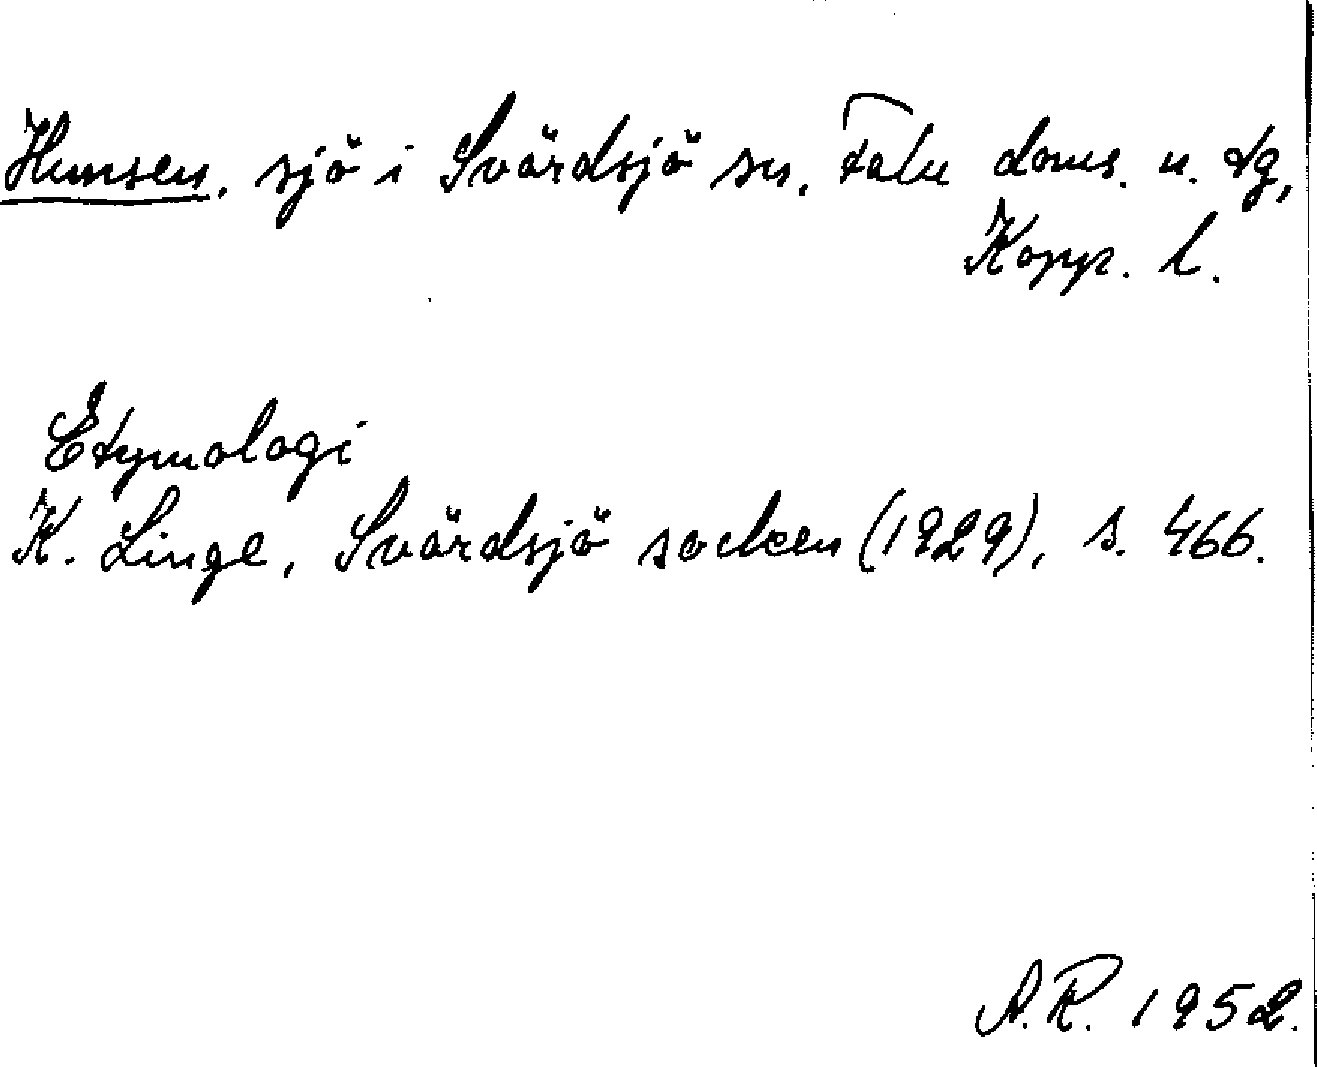 Hunsen, sjö i Svärdsjö sn, Falu doms. n. tg,
Kopp. l.
Etymologi
K. Linge, Svärdsjö socken (1929), s. 466.
A.R. 1952.